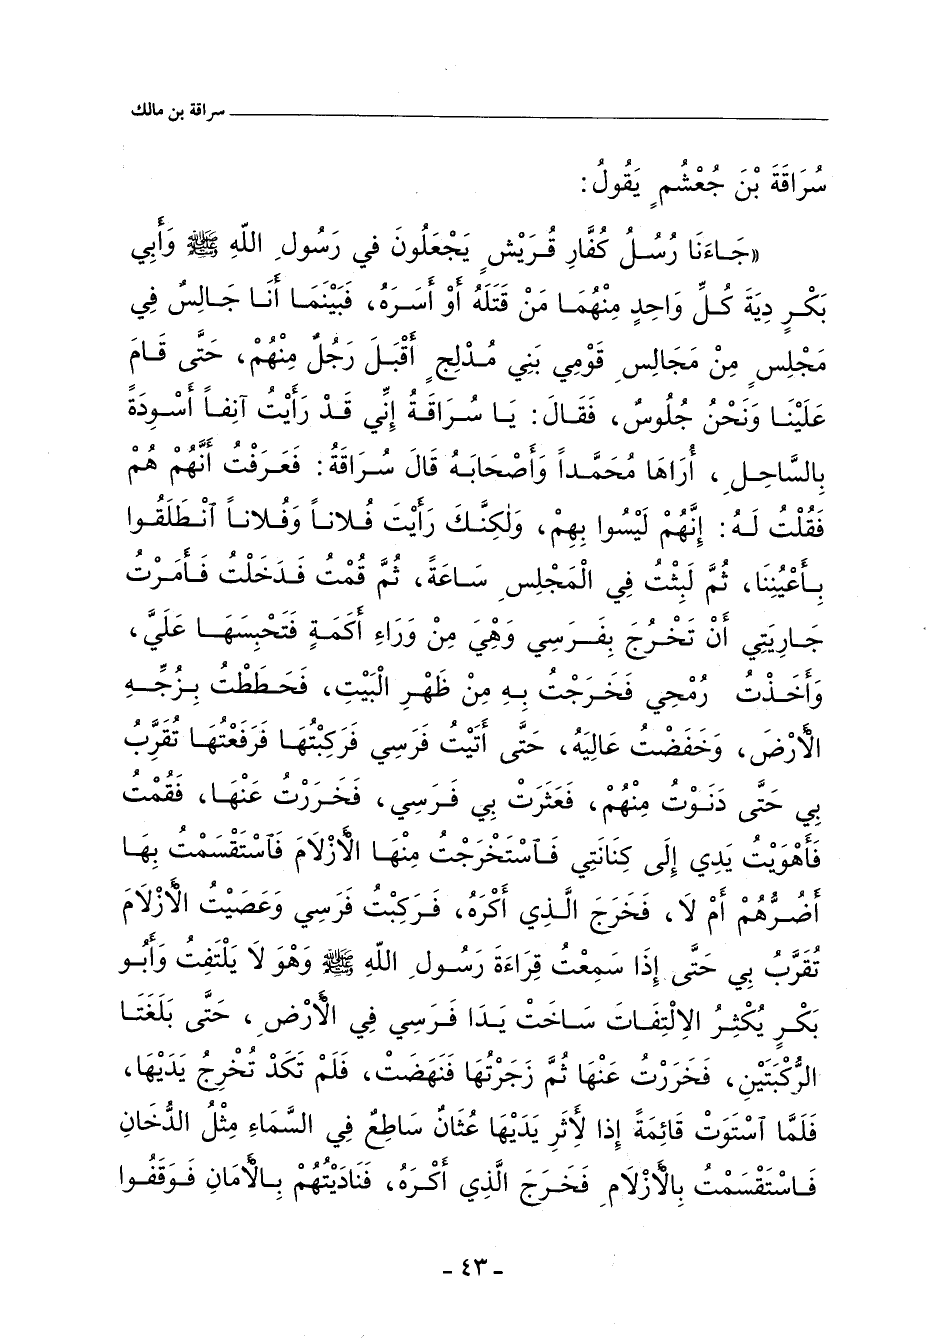 سراقة بن مالك
سُرَاقَةَ بْنَ جُعْشُمٍ يَقُولُ:
«جَاءَنَا رُسُلُ كُفَّارِ قُرَيْشٍ يَجْعَلُونَ في رَسُولِ اللَّهِ ﷺ وَأَبِي
بَكْرٍ دِيَةَ كُلِّ وَاحِدٍ مِنْهُمَا مَنْ قَتَلَهُ أَوْ أَسَرَهُ، فَبَيْنَمَا أَنَا جَالِسٌ فِي
مَجْلِسٍ مِنْ مَجَالِسِ قَوْمِي بَنِي مُدْلِجٍ أَقْبَلَ رَجُلٌ مِنْهُمْ، حَتَّى قَامَ
عَلَيْنَا وَنَحْنُ جُلُوسٌ، فَقَالَ: يَا سُرَاقَةُ إِنِّي قَدْ رَأَيْتُ آنِفاً أَسْوِدَةً
بِالسَّاحِلِ، أُرَاهَا مُحَمَّداً وَأَصْحَابَهُ قَالَ سُرَاقَةُ: فَعَرَفْتُ أَنَّهُمْ هُمْ
فَقُلْتُ لَهُ: إِنَّهُمْ لَيْسُوا بِهِمْ، وَلٰكِنَّكَ رَأَيْتَ فُلَاناً وَفُلَاناً ٱنْطَلَقُوا
بِأَعْيُنِنَا، ثُمَّ لَبِثْتُ فِي الْمَجْلِسِ سَاعَةً، ثُمَّ قُمْتُ فَدَخَلْتُ فَأَمَرْتُ
جَارِيَتِي أَنْ تَخْرُجَ بِفَرَسِي وَهْيَ مِنْ وَرَاءِ أَكَمَةٍ فَتَحْبِسَهَا عَلَيَّ،
وَأَخَذْتُ رُمْحِي فَخَرَجْتُ بِهِ مِنْ ظَهْرِ الْبَيْتِ، فَحَطَطْتُ بِزُجِّهِ
الْأَرْضَ، وَخَفَضْتُ عَالِيَهُ، حَتَّى أَتَيْتُ فَرَسِي فَرَكِبْتُهَا فَرَفَعْتُهَا تُقَرِّبُ
بِي حَتَّى دَنَوْتُ مِنْهُمْ، فَعَثَرَتْ بِي فَرَسِي، فَخَرَرْتُ عَنْهَا، فَقُمْتُ
فَأَهْوَيْتُ يَدِي إِلَى كِنَانَتِي فَٱسْتَخْرَجْتُ مِنْهَا الْأَزْلَامَ فَٱسْتَقْسَمْتُ بِهَا
أَضُرُّهُمْ أَمْ لَا، فَخَرَجَ الَّذِي أَكْرَهُ، فَرَكِبْتُ فَرَسِي وَعَصَيْتُ الْأَزْلَامَ
تُقَرِّبُ بِي حَتَّى إِذَا سَمِعْتُ قِرَاءَةَ رَسُولِ اللَّهِ ﷺ وَهْوَ لَا يَلْتَفِتُ وَأَبُو
بَكْرٍ يُكْثِرُ الِالْتِفَاتَ سَاخَتْ يَدَا فَرَسِي فِي الْأَرْضِ، حَتَّى بَلَغَتَا
الرُّكْبَتَيْنِ، فَخَرَرْتُ عَنْهَا ثُمَّ زَجَرْتُهَا فَنَهَضَتْ، فَلَمْ تَكَدْ تُخْرِجُ يَدَيْهَا،
فَلَمَّا ٱسْتَوَتْ قَائِمَةً إِذَا لِأَثَرِ يَدَيْهَا عُثَانٌ سَاطِعٌ فِي السَّمَاءِ مِثْلُ الدُّخَانِ
فَاسْتَقْسَمْتُ بِالْأَزْلَامِ فَخَرَجَ الَّذِي أَكْرَهُ، فَنَادَيْتُهُمْ بِالْأَمَانِ فَوَقَفُوا
- ٤٣ -